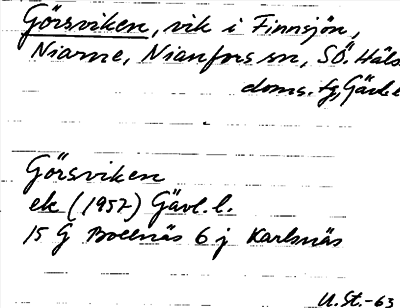 Görsviken, vik i Finnsjön,
Niarne, Nianfors sn, SÖ. Häls.
doms. tg, Gävl. l
Görsviken
ek (1957) Gävl. l.
15 G Bollnäs 6 j Karlsnäs
U. St. -63